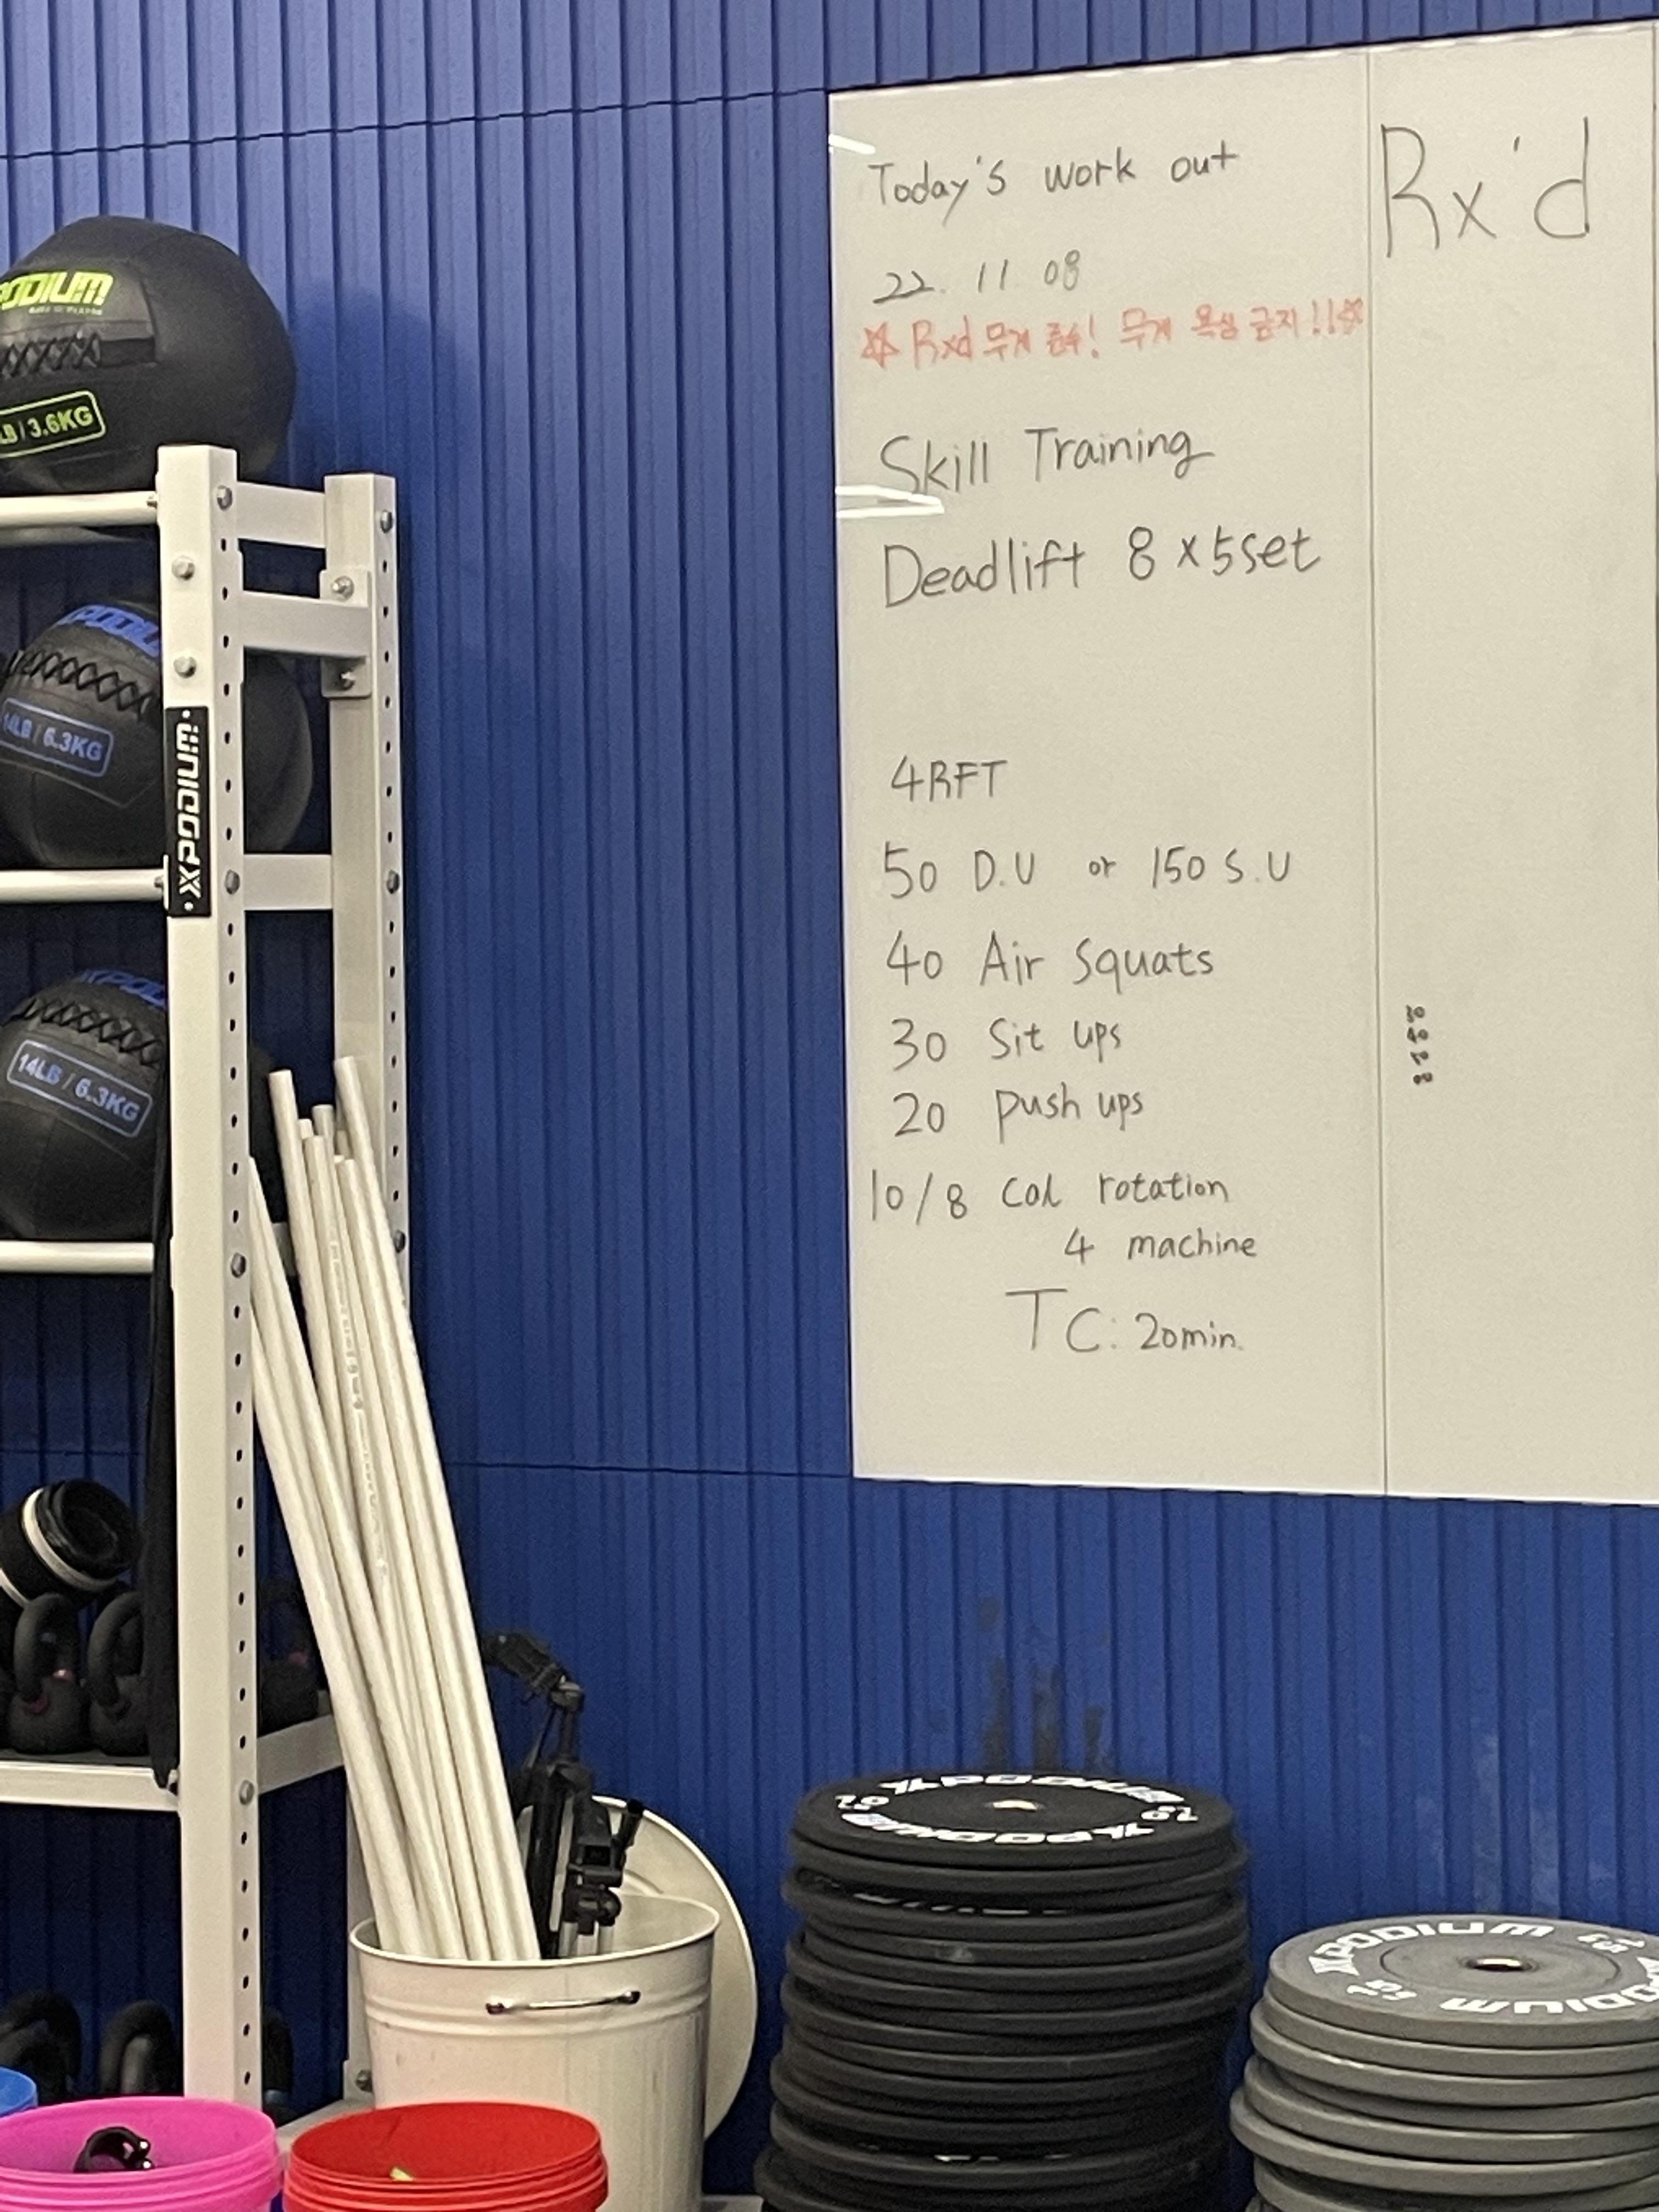 Today's work out
22. 11 08
☆ Rxd 무게 준수! 무게 욕심 금지!!☆
Skill Training
Deadlift 8 x 5set
4RFT
50 D.U or 150 S.U
40 Air Squats
30 Sit ups
20 push ups
10/8 Cal rotation
4 machine
TC: 20min.
Rx'd
PODIUM
LB / 3.6KG
14LB / 6.3KG
XPODIUM
14LB / 6.3KG
XPODIUM
XPODIUM
XPODIUM